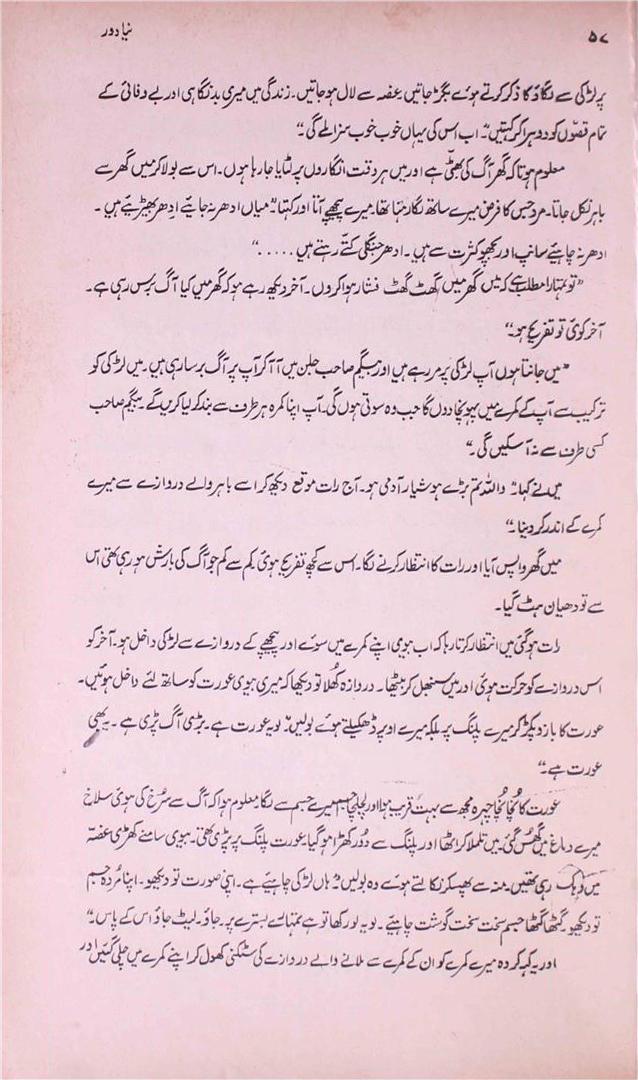 ۵۷
نیا دور
پر لڑکی سے لگاؤ کا ذکر کرتے ہوئے بگڑ جاتیں غصہ سے لال ہو جاتیں۔ زندگی میں میری بد نگاہی اور بے وفائی کے
تمام قصّوں کو دوہرا کر کہتیں" اب اس کی یہاں خوب خوب سزا ملے گی۔"
معلوم ہوتا کہ گھر آگ کی بھٹّی ہے اور میں ہر وقت انگاروں پر لٹایا جا رہا ہوں۔ اس سے بولا کر میں گھر سے
باہر نکل جاتا۔ مرد جس کا فرض میرے ساتھ لگا رہنا تھا۔ میرے پیچھے آتا اور کہتا" میاں ادھر نہ جایئے ادھر بھیڑیئے ہیں۔
ادھر نہ جایئے سانپ اور بچھو کثرت سے ہیں۔ ادھر جنگلی کتّے رہتے ہیں ....."
"تو تمہارا مطلب ہے کہ میں گھر میں گھٹ گھٹ فشار ہوا کروں۔ آخر دیکھ رہے ہو کہ گھر میں کیا آگ برس رہی ہے۔
آخر کوئی تو تفریح ہو۔"
"میں جانتا ہوں آپ لڑکی پر مر رہے ہیں اور بیگم صاحب جلن میں آ آ کر آپ پر آگ برسا رہی ہیں۔ میں لڑکی کو
ترکیب سے آپ کے کمرے میں پہونچا دوں گا جب وہ سوتی ہوں گی۔ آپ اپنا کمرہ ہر طرف سے بند کر لیا کریں گے۔ بیگم صاحب
کسی طرف سے نہ آ سکیں گی۔"
میں نے کہا" واللہ تم بڑے ہوشیار آدمی ہو۔ آج رات موقع دیکھ کر اسے باہر والے دروازے سے میرے
کمرے کے اندر کر دینا۔"
میں گھر واپس آیا اور رات کا انتظار کرنے لگا۔ اس سے کچھ تفریح ہوئی کم سے کم جو آگ کی بارش ہو رہی تھی اس
سے تو دھیان ہٹ گیا۔
رات ہو گئی میں انتظار کرتا رہا کہ اب بیوی اپنے کمرے میں سوئے اور پیچھے کے دروازے سے لڑکی داخل ہو۔ آخر کو
اس دروازے کو حرکت ہوئی اور میں سنبھل کر بیٹھا۔ دروازہ کُھلا تو دیکھا کہ میری بیوی عورت کو ساتھ لئے داخل ہوئیں۔
عورت کا بازو پکڑ کر میرے پلنگ پر بلکہ میرے اوپر ڈھکیلتے ہوئے بولیں" لو یہ عورت ہے۔ بڑی آگ پڑی ہے۔ یہ بھی
عورت ہے۔"
عورت کا نُچا نُچا چہرہ مجھ سے بہت قریب ہوا اور لچلچا جسم میرے جسم سے لگا معلوم ہوا کہ آگ سے سُرخ کی ہوئی سلاخ
میرے دماغ میں گُھس گئی۔ میں تلملا کر اٹھا اور پلنگ سے دُور کھڑا ہو گیا۔ عورت پلنگ پر پڑی تھی۔ بیوی سامنے کھڑی غصّہ
میں دہک رہی تھیں۔ منہ سے بھپکے نکالتے ہوئے وہ بولیں" ہاں لڑکی چاہیئے ہے۔ اپنی صورت تو دیکھو۔ اپنا مُردہ جسم
تو دیکھو۔ گٹھا گٹھا جسم سخت سخت گوشت چاہیئے۔ لو یہ نور کھا تو ہے تمہارے بستر پر۔ جاؤ۔ لیٹ جاؤ اس کے پاس۔"
اور یہ کہہ کر وہ میرے کمرے کو ان کے کمرے سے ملانے والے دروازے کی سٹکنی کھول کر اپنے کمرے میں چلی گئیں اور